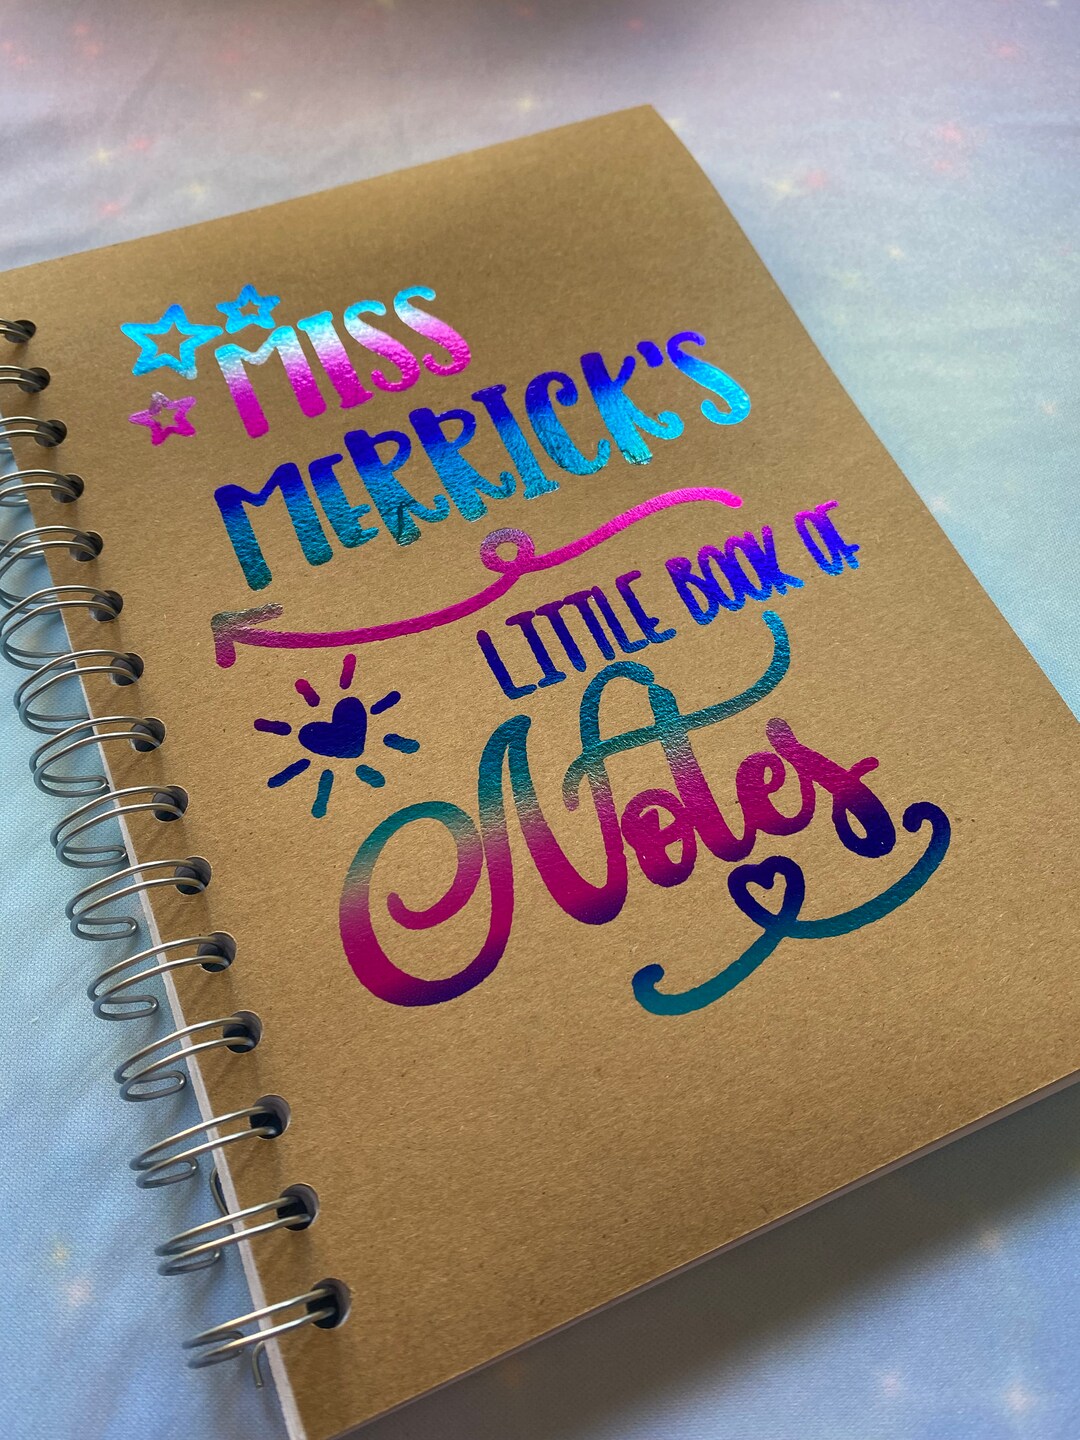 MISS
MERRICK'S
LITTLE BOOK OF
Notes